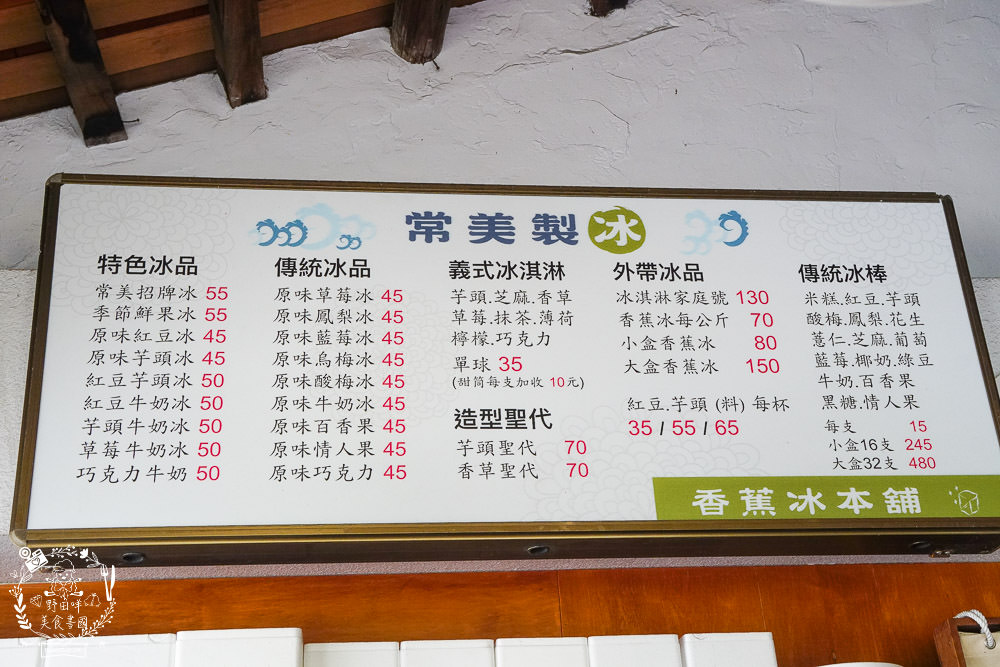 常美製冰
特色冰品
常美招牌冰 55
季節鮮果冰 55
原味紅豆冰 45
原味芋頭冰 45
紅豆芋頭冰 50
紅豆牛奶冰 50
芋頭牛奶冰 50
草莓牛奶冰 50
巧克力牛奶 50
傳統冰品
原味草莓冰 45
原味鳳梨冰 45
原味藍莓冰 45
原味烏梅冰 45
原味酸梅冰 45
原味牛奶冰 45
原味百香果 45
原味情人果 45
原味巧克力 45
義式冰淇淋
芋頭.芝麻.香草
草莓.抹茶.薄荷
檸檬.巧克力
單球 35
(甜筒每支加收 10元)
造型聖代
芋頭聖代 70
香草聖代 70
外帶冰品
冰淇淋家庭號 130
香蕉冰每公斤 70
小盒香蕉冰 80
大盒香蕉冰 150
紅豆.芋頭 (料) 每杯
35 / 55 / 65
傳統冰棒
米糕.紅豆.芋頭
酸梅.鳳梨.花生
薏仁.芝麻.葡萄
藍莓.椰奶.綠豆
牛奶.百香果
黑糖.情人果
每支 15
小盒16支 245
大盒32支 480
香蕉冰本舖
野田咩
美食書國